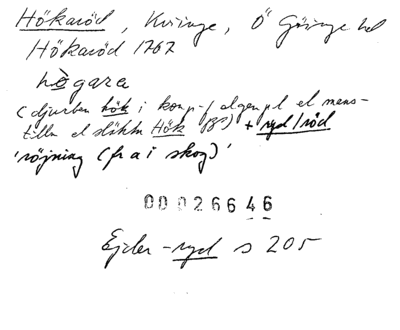 Hökaröd, Kviinge, Ö Göinge hd
Hökaröd 1767
hègara
(djurben hök i komp-/ el mens-
tilln el släktn Hök ) + ryd/röd
'röjning (fr a i skog)'
00026646
Ejder-ryd s 205